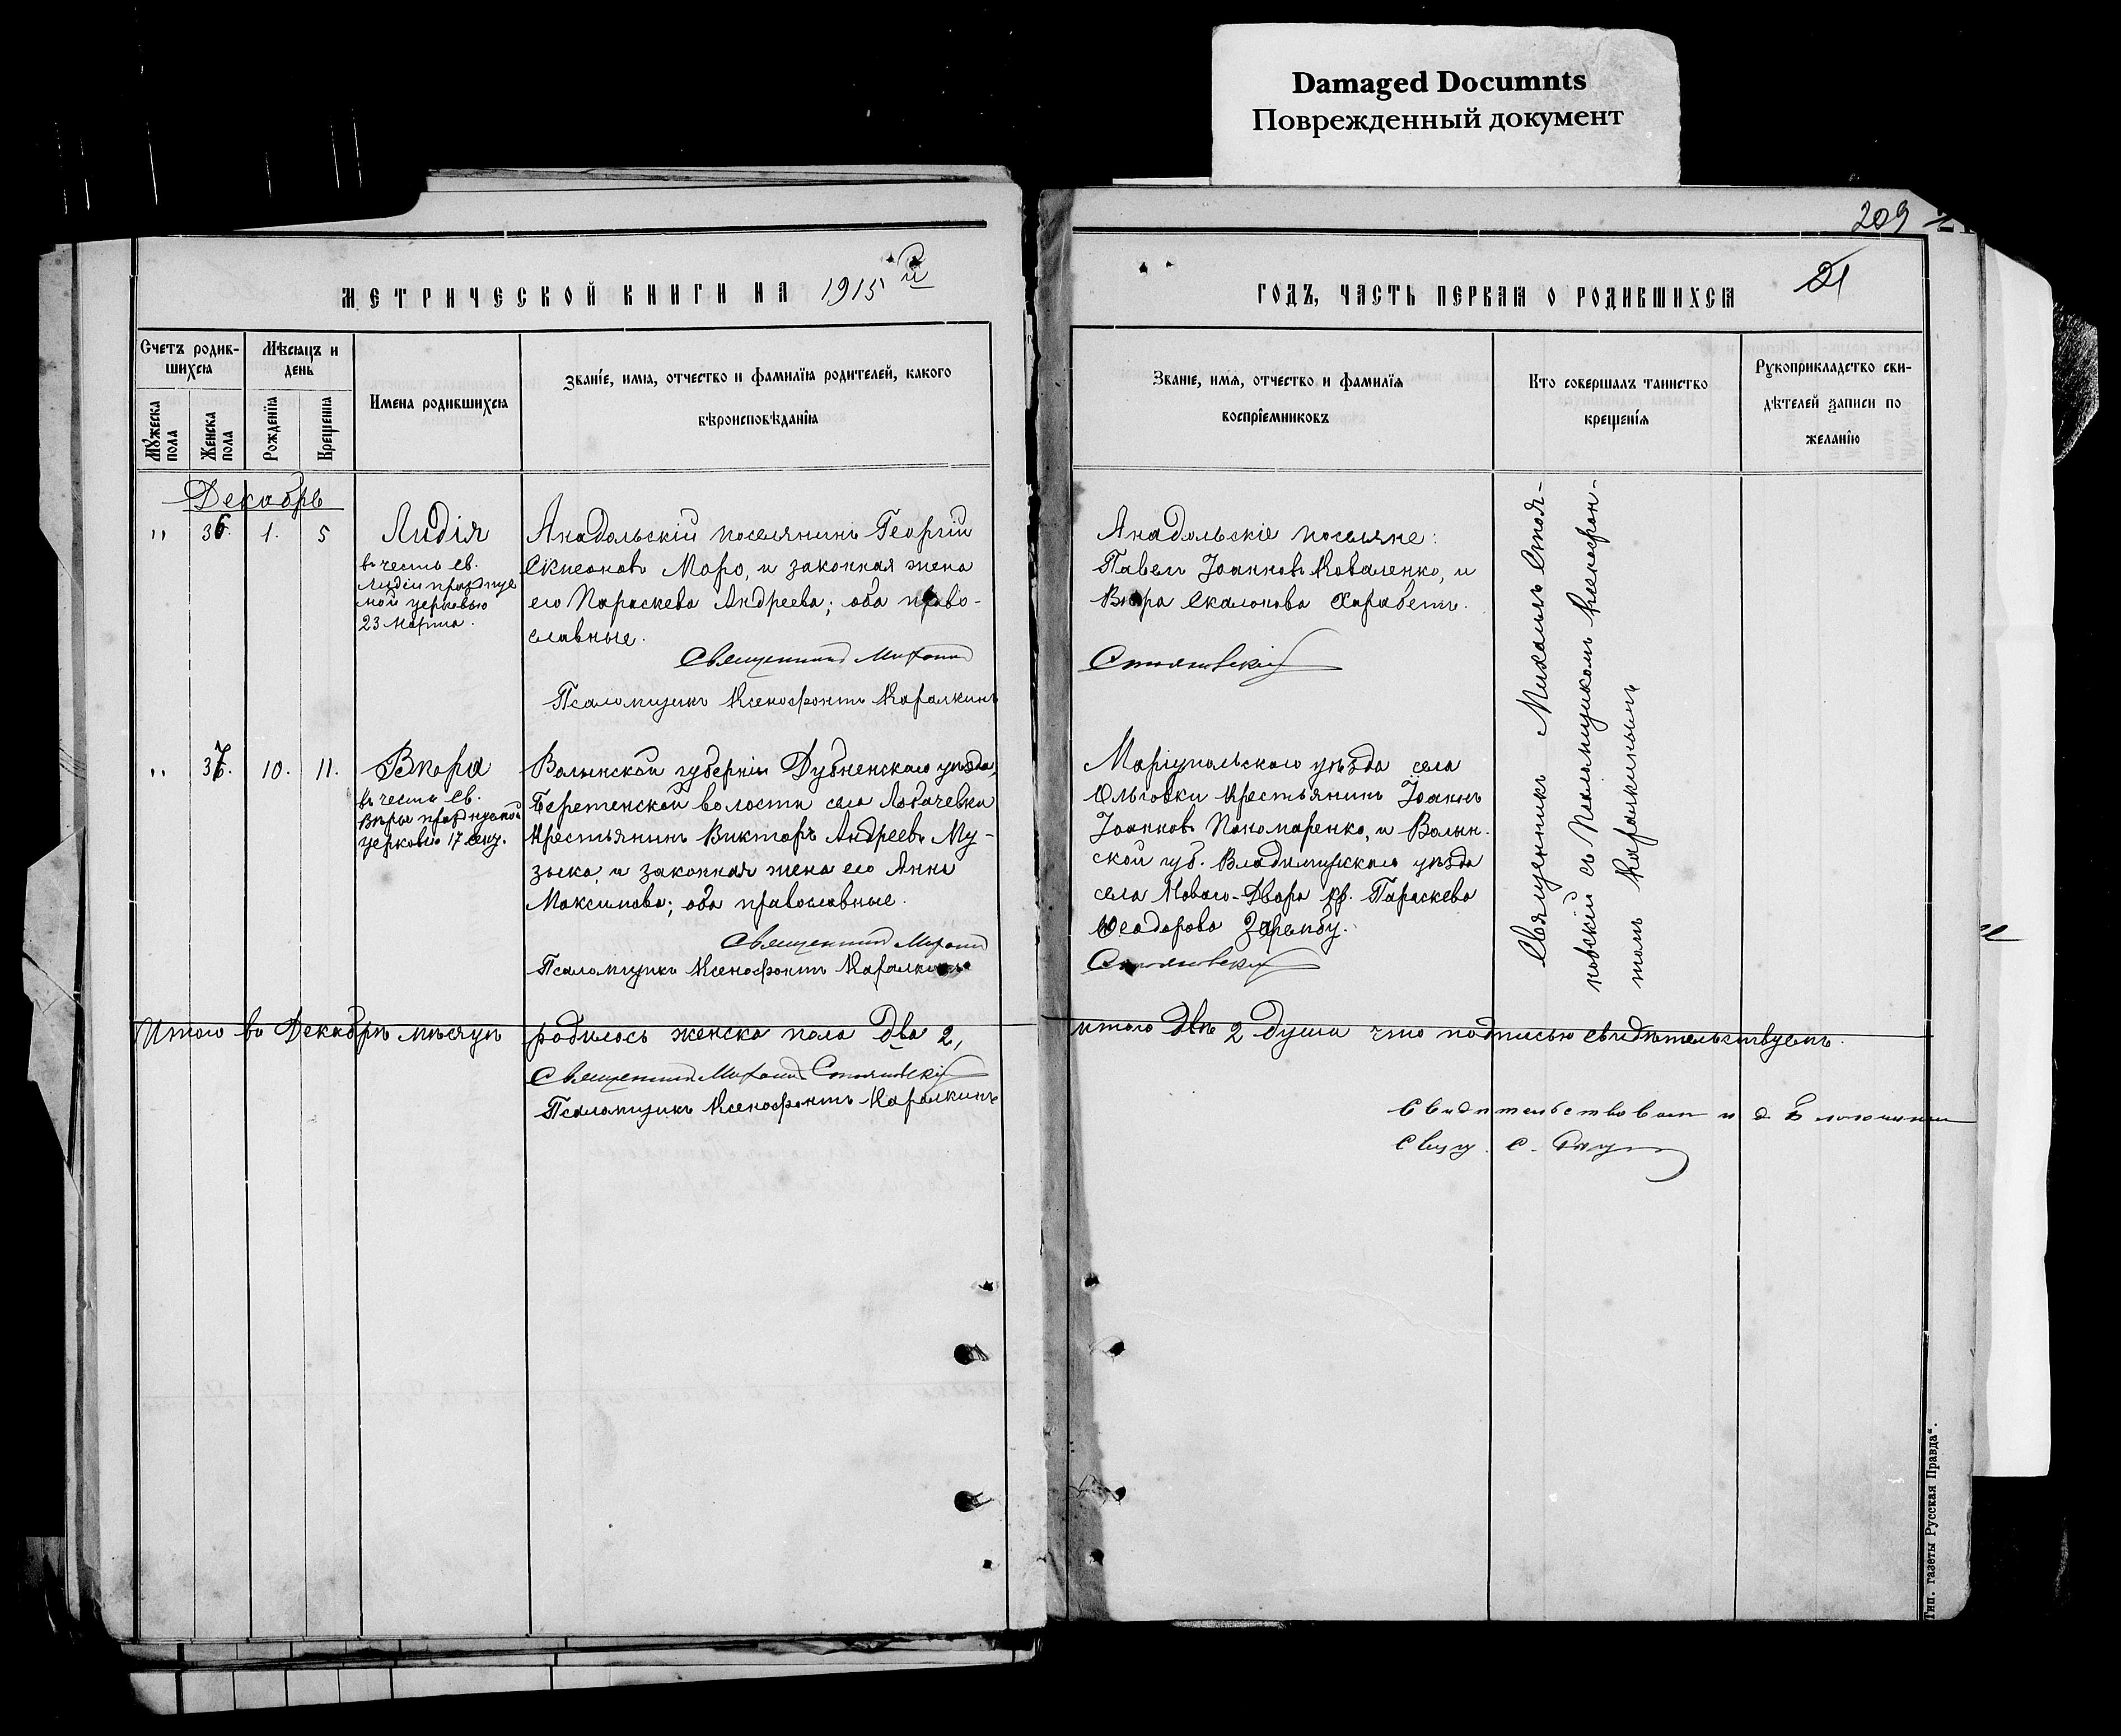 Damaged Documnts
Поврежденный документ
209
21
МЕТРИЧЕСКОЙ КНИГИ НА 1915 й
ГОДЪ, ЧАСТЬ ПЕРВАЯ О РОДИВШИХСЯ
Счетъ родив-
шихся
Мѣсяцъ и
день
Имена родившихся
Званіе, имя, отчество и фамилія родителей, какого
вѣроисповѣданія
Мужеска
пола
Женска
пола
Рожденія
Крещенія
Званіе, имя, отчество и фамилія
воспріемниковъ
Кто совершалъ таинство
крещенія
Рукоприкладство сви-
дѣтелей записи по
желанію
Декабрь
" 36. 1. 5
Лидія
въ честь св.
Лидіи празднуе
мой церковью
23 Марта.
Анадольскій поселянинъ Георгій
Симеоновъ Моро, и законная жена
его Параскева Андреева; оба право-
славные.
Священникъ Михаилъ
Псаломщикъ Ксенофонтъ Каралкинъ
Анадольскіе поселяне:
Павелъ Іоанновъ Коваленко, и
Вѣра Харабетъ.
Стояновскій
Священникъ Михаилъ Стоя-
новскій съ Псаломщикомъ Ксенофон-
томъ Каралкинымъ
" 37. 10. 11.
Вѣра
въ честь св.
Вѣры празднуемой
церковью 17 сент.
Волынской губерніи Дубненскаго уѣзда,
Берестенской волости села Лобачевки
крестьянинъ Викторъ Андреевъ Му-
зыка, и законная жена его Анна
Максимова; оба православные.
Священникъ Михаилъ
Псаломщикъ Ксенофонтъ Каралкинъ
Маріупольскаго уѣзда села
Ольговки крестьянинъ Іоаннъ
Іоанновъ Пономаренко, и Волын-
ской губ. Владимірскаго уѣзда
села Новаго-Двора кр. Параскева
Ѳеодорова
Стояновскій
Итого въ Декабрѣ мѣсяцѣ родилось женска пола два 2,
итого двѣ 2 души что подписью свидѣтельствуемъ.
Священникъ Михаилъ Стояновскій
Псаломщикъ Ксенофонтъ Каралкинъ
Свидѣтельствовалъ и д Благочиннаго
Свящ. С.
Тип. газеты Русская Правда".